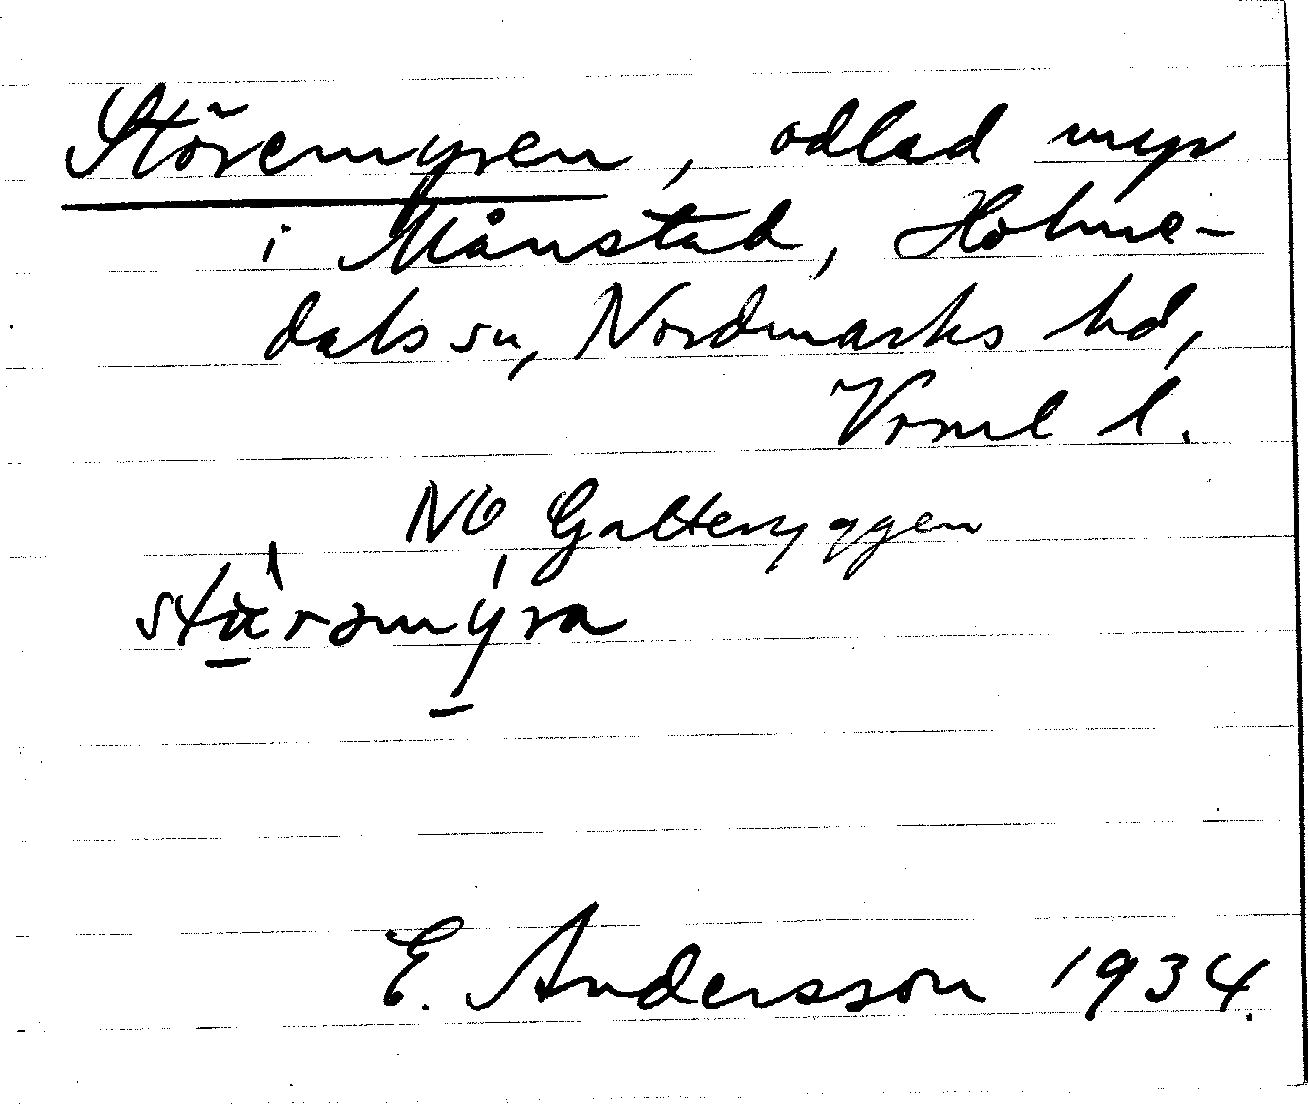 Störemyren, odlad myr
i Månstad, Holme-
dals sn, Nordmarks hd,
Vrml l.
NO Galteryggen
E. Andersson 1934.